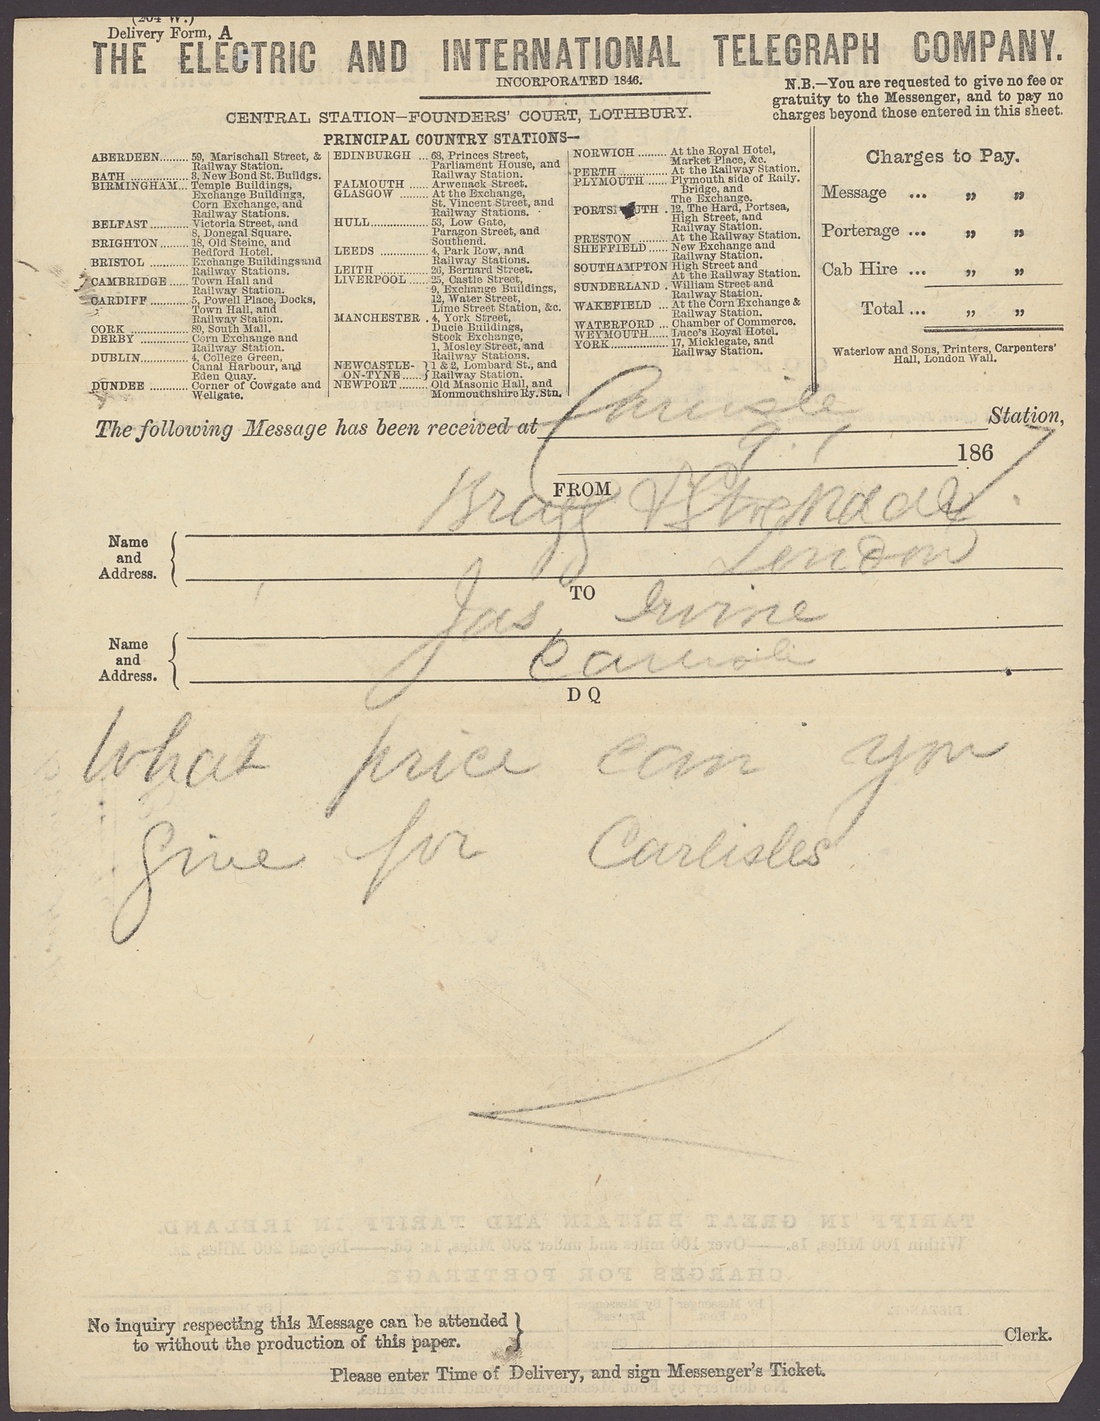 (204 W.)
Delivery Form, A
THE ELECTRIC AND INTERNATIONAL TELEGRAPH COMPANY.
INCORPORATED 1846.
N.B.—You are requested to give no fee or
gratuity to the Messenger, and to pay no
charges beyond those entered in this sheet.
CENTRAL STATION—FOUNDERS' COURT, LOTHBURY.
PRINCIPAL COUNTRY STATIONS—
ABERDEEN......... 59, Marischall Street, &
Railway Station.
BATH ............... 8, New Bond St. Buildgs.
BIRMINGHAM... Temple Buildings,
Exchange Buildings,
Corn Exchange, and
Railway Stations.
BELFAST ......... Victoria Street, and
8, Donegal Square.
BRIGHTON ...... 18, Old Steine, and
Bedford Hotel.
BRISTOL ......... Exchange Buildings and
Railway Stations.
CAMBRIDGE ... Town Hall and
Railway Station.
CARDIFF ......... 5, Powell Place, Docks,
Town Hall, and
Railway Station.
CORK ............... 89, South Mall.
DERBY ............ Corn Exchange and
Railway Station.
DUBLIN............ 4, College Green,
Canal Harbour, and
Eden Quay.
DUNDEE ......... Corner of Cowgate and
Wellgate.
EDINBURGH ... 68, Princes Street,
Parliament House, and
Railway Station.
FALMOUTH ...... Arwenack Street.
GLASGOW ......... At the Exchange,
St. Vincent Street, and
Railway Stations.
HULL............... 53, Low Gate,
Paragon Street, and
Southend.
LEEDS ............ 4, Park Row, and
Railway Stations.
LEITH ............ 26, Bernard Street.
LIVERPOOL ...... 25, Castle Street,
9, Exchange Buildings,
12, Water Street,
Lime Street Station, &c.
MANCHESTER . 4, York Street,
Ducie Buildings,
Stock Exchange,
1, Mosley Street, and
Railway Stations.
NEWCASTLE- } 1 & 2, Lombard St., and
ON-TYNE..... } Railway Station.
NEWPORT ...... Old Masonic Hall, and
Monmouthshire Ry. Stn.
NORWICH ......... At the Royal Hotel,
Market Place, &c.
PERTH ............ At the Railway Station.
PLYMOUTH ...... Plymouth side of Raily.
Bridge, and
The Exchange.
PORTSMOUTH . 12, The Hard, Portsea,
High Street, and
Railway Station.
PRESTON ......... At the Railway Station.
SHEFFIELD ...... New Exchange and
Railway Station.
SOUTHAMPTON High Street and
At the Railway Station.
SUNDERLAND . William Street and
Railway Station.
WAKEFIELD ... At the Corn Exchange &
Railway Station.
WATERFORD ... Chamber of Commerce.
WEYMOUTH...... Luce's Royal Hotel.
YORK............... 17, Micklegate, and
Railway Station.
Charges to Pay.
Message ... „ „
Porterage ... „ „
Cab Hire ... „ „
Total ... „ „
Waterlow and Sons, Printers, Carpenters'
Hall, London Wall.
The following Message has been received at Carlisle Station,
9.1 1867
FROM
Bragg &
Name and Address. { London
TO
Jas Irvine
Name and Address. { Carlisle
D Q
What price can you
give for Carlisles
TARIFF IN GREAT BRITAIN AND TARIFF IN IRELAND.
Within 100 Miles, 1s.—Over 100 miles and under 200 Miles, 1s. 6d.—Beyond 200 Miles, 2s.
CHARGES FOR PORTERAGE.
No inquiry respecting this Message can be attended
to without the production of this paper. }
Clerk.
Please enter Time of Delivery, and sign Messenger's Ticket.